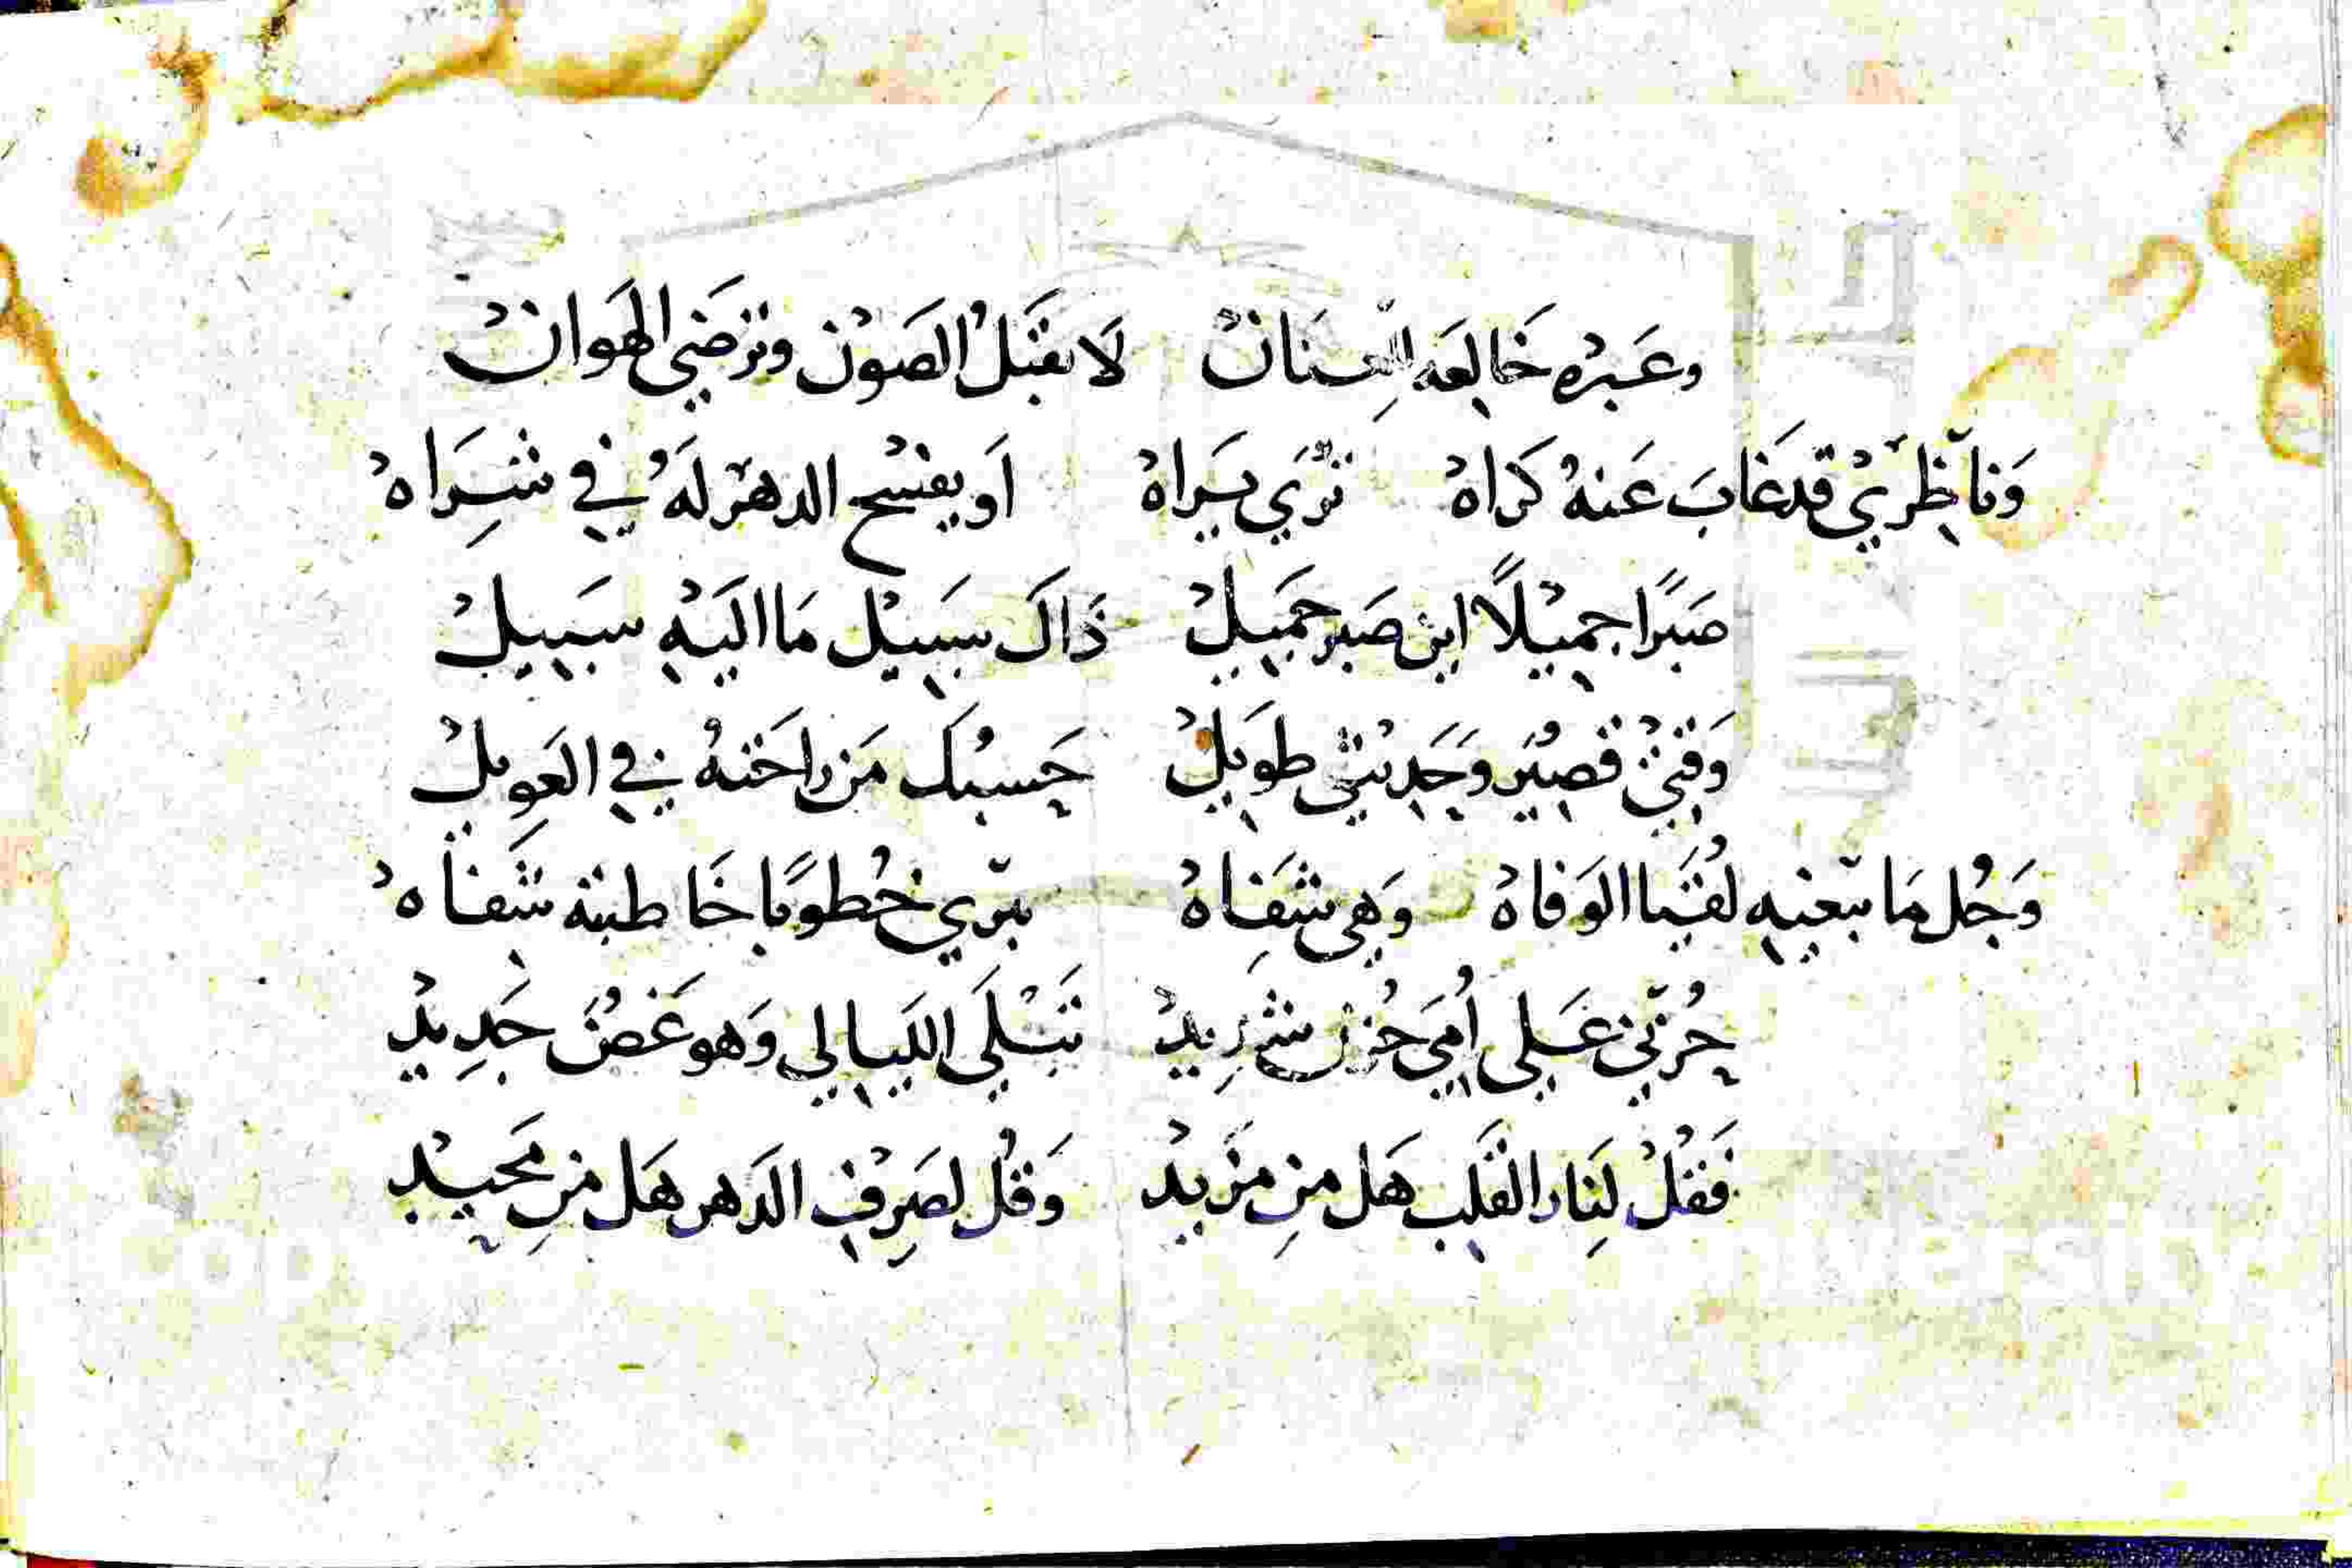 وعَبْره خَالِعَه العِنَانْ لَا تقبَلُ الصَوْن وترْضَى الهَوانْ
وَناظِريْ قد غَابَ عَنهُ كَراهْ تُرَي يَراهْ اَو يفسْح الدهرْ لَهُ في شِرَاهْ
صَبرًا جميْلًا اين صَبر جَميلْ ذَاكَ سَبيْل مَا اليَهْ سَبيلْ
وَقتيْ قصيُر وَحَديثي طَويلْ حَسبُك مَن راحَتهُ في العَويلْ
وَجُل مَا تبغيه لقُيَا الوَفاهْ وَهي شَفاهْ تبري خُطوبًا خَاطبته شَفاهْ
حُزني عَلي اُمي حُزن شَدِيدْ تَبْلَى اللَيالي وَهو غَضُ جَدِيدْ
فَقلْ لِنَار القَلب هَل مِن مَزيدْ وَقُل لصَرِفْ الدَهر هَل مِن مَحيدْ